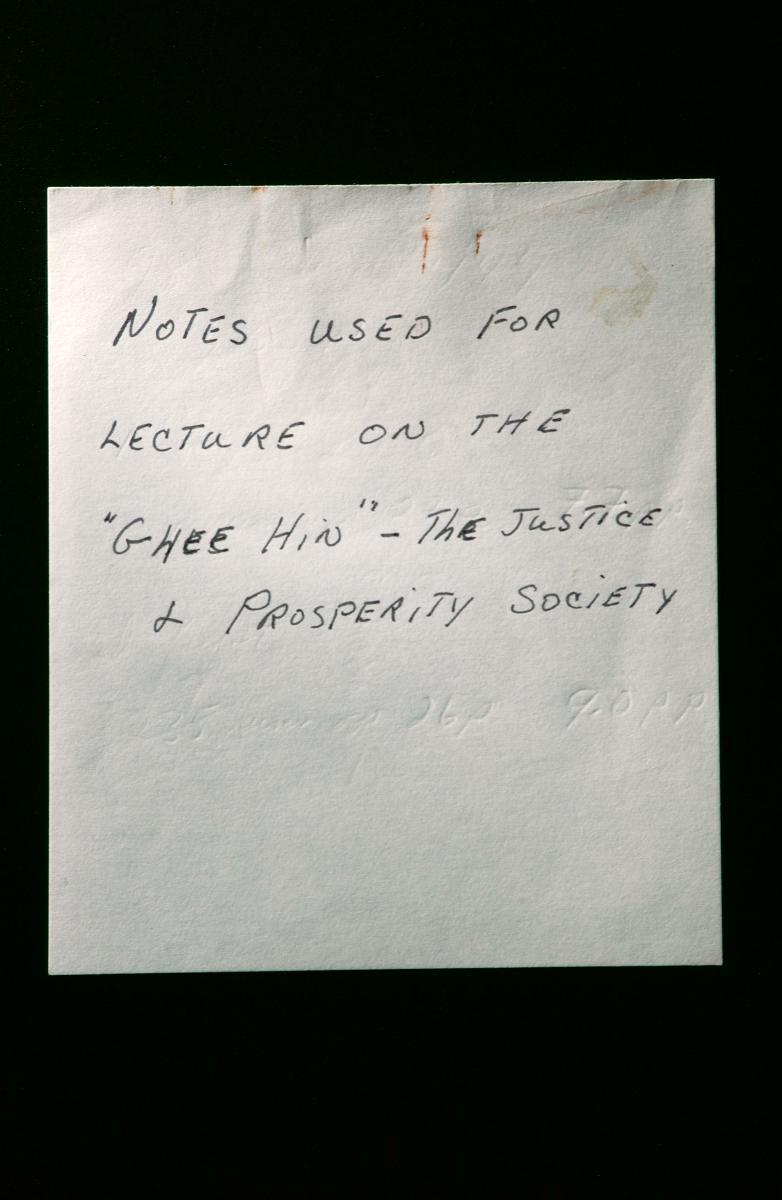 NOTES USED FOR
LECTURE ON THE
"GHEE HIN" - THE JUSTICE
& PROSPERITY SOCIETY